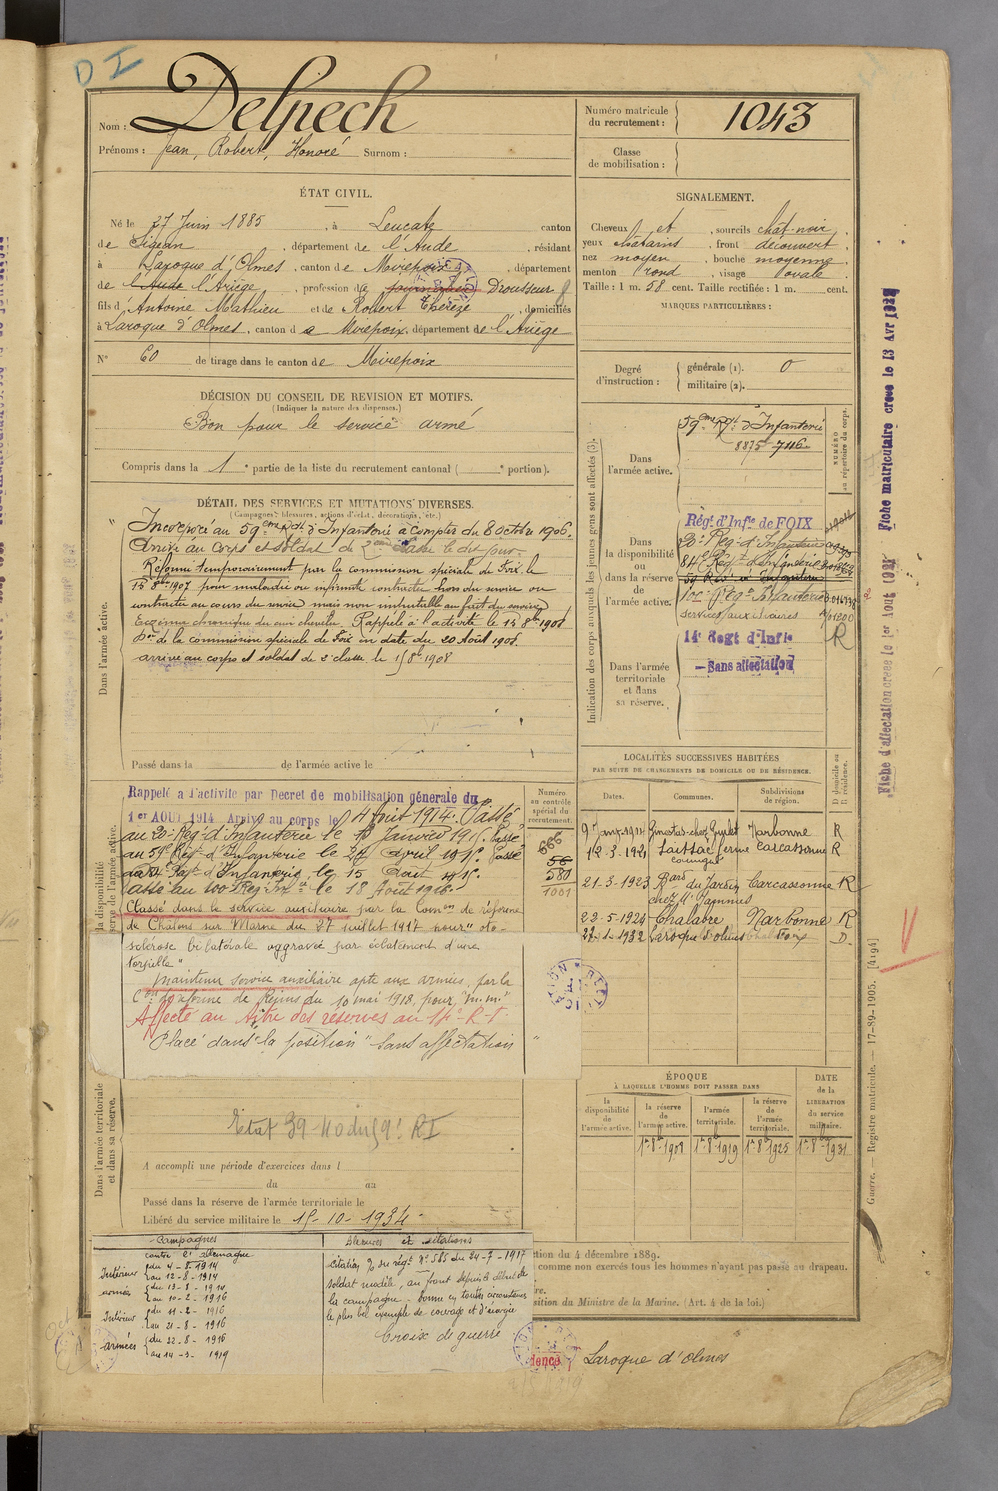 D I
Nom : Delpech
Prénoms : Jean, Robert, Honoré Surnom :
Numéro matricule du recrutement : 1043
Classe de mobilisation :
ÉTAT CIVIL.
Né le 27 Juin 1885, à Leucate canton
de Sigean, département de l'Aude, résidant
à Laroque d'Olmes, canton de Mirepoix, département
de l'Aude l'Ariège, profession de Drousseur
fils d'Antoine Mathieu et de Robert Thérèze, domiciliés
à Laroque d'Olmes, canton de Mirepoix, département de l'Ariège
N° 60 de tirage dans le canton de Mirepoix
SIGNALEMENT.
Cheveux et, sourcils chât-noir,
yeux châtains, front découvert,
nez moyen, bouche moyenne,
menton rond, visage ovale.
Taille : 1 m. 58 cent. Taille rectifiée : 1 m. cent.
MARQUES PARTICULIÈRES :
Degré d'instruction : générale (1). 0
militaire (2).
DÉCISION DU CONSEIL DE REVISION ET MOTIFS.
(Indiquer la nature des dispenses.)
Bon pour le service armé
Compris dans la 1e partie de la liste du recrutement cantonal ( e portion).
DÉTAIL DES SERVICES ET MUTATIONS DIVERSES.
(Campagnes, blessures, actions d'éclat, décorations, etc.)
Dans l'armée active.
Incorporé au 59eme Rgt d'Infanterie à compter du 8 Octobre 1906.
Arrivé au corps et soldat de 2eme classe le dit jour.
Réformé temporairement par la commission spéciale de Foix le
15 8bre 1907 pour maladie ou infirmité contractée hors du service ou
contractée au cours du service mais non imputable au fait du service
Eczéma chronique du cuir chevelu. Rappelé à l'activité le 1r 8bre 1908
Don de la commission spéciale de Foix en date du 20 Août 1908.
arrivé au corps et soldat de 2e classe le 1r 8bre 1908
Passé dans la de l'armée active le
Indication des corps auxquels les jeunes gens sont affectés (3).
NUMÉRO au répertoire du corps.
Dans l'armée active.
59eme Rgt d'Infanterie
8875 7116
Dans la disponibilité ou dans la réserve de l'armée active.
Régt d'Infie de FOIX
20e Rég. d'Infanterie
84e Régt d'Infanterie
59 Régt d'Infanterie
100e Régt Infanterie
services auxiliaires
R
14e Regt d'Infie
— Sans affectation
Dans l'armée territoriale et dans sa réserve.
Fiche matriculaire creee le 13 Avr
Fiche d'affectation creee le 1er Aout
la disponibilité
réserve de l'armée active.
Rappelé a l'activité par Decret de mobilisation générale du
1er AOUT 1914 Arrivé au corps le 4 Août 1914. Passé
au 20e Rég. d'Infanterie le 13 Janvier 1916. Passé
au 59e Régt d'Infanterie le 24 avril 191. Passé
au 84e Régt d'Infanterie le 15 Août 191.
Passé au 100e Reg Infie le 18 Août 1916.
Classé dans le service auxiliaire par la Comon de réforme
de Châlons sur Marne du 27 juillet 1917 pour "oto-
sclérose bilatérale aggravée par éclatement d'une
torpille"
maintenu service auxiliaire apte aux armées par la
Con de réforme de Reims du 10 mai 1918, pour "m.m."
Affecté au titre des réserves au 14e R.I.
Placé dans "la position "sans affectation"
Numéro au contrôle spécial du recrutement.
666
56
580
1001
LOCALITÉS SUCCESSIVES HABITÉES
PAR SUITE DE CHANGEMENTS DE DOMICILE OU DE RÉSIDENCE.
Dates. Communes. Subdivisions de région. D domicile ou R résidence.
9 janv 1914 Ginestas chez Narbonne R
12-3-1921 Saissac Carcassonne R
21-3-1923 Bard du Jardin Carcassonne R
22-5-1924 Chalabre Narbonne R
22-1-1932 Laroque d'Olmes Foix D.
ÉPOQUE
À LAQUELLE L'HOMME DOIT PASSER DANS
la disponibilité de l'armée active. la réserve de l'armée active. l'armée territoriale. la réserve de l'armée territoriale.
DATE de la LIBÉRATION du service militaire.
1r 8b 1908 1r 8b 1919 1r 8b 1925 1r 8b 1931
Dans l'armée territoriale et dans sa réserve.
Etat 39-40 du 59e RI
A accompli une période d'exercices dans l
du au
Passé dans la réserve de l'armée territoriale le
Libéré du service militaire le 15-10-1934
Campagnes
contre l'Allemagne
Intérieur du 4-8-1914
au 12-8-1914
armées du 13-8-1914
au 10-2-1916
Intérieur du 11-2-1916
au 21-8-1916
armées du 22-8-1916
au 14-3-1919
Blessures et citations
citation O/ du régt n° 585 du 24-7-1917
soldat modèle, au front depuis le début de
la campagne - donne en toutes circonstances
le plus bel exemple de courage et d'énergie
Croix de guerre
ction du 4 décembre 1889.
comme non exercés tous les hommes n'ayant pas passé au drapeau.
sition du Ministre de la Marine. (Art. 4 de la loi.)
Laroque d'Olmes
Guerre. — Registre matricule. — 17-89-1905. [4194]